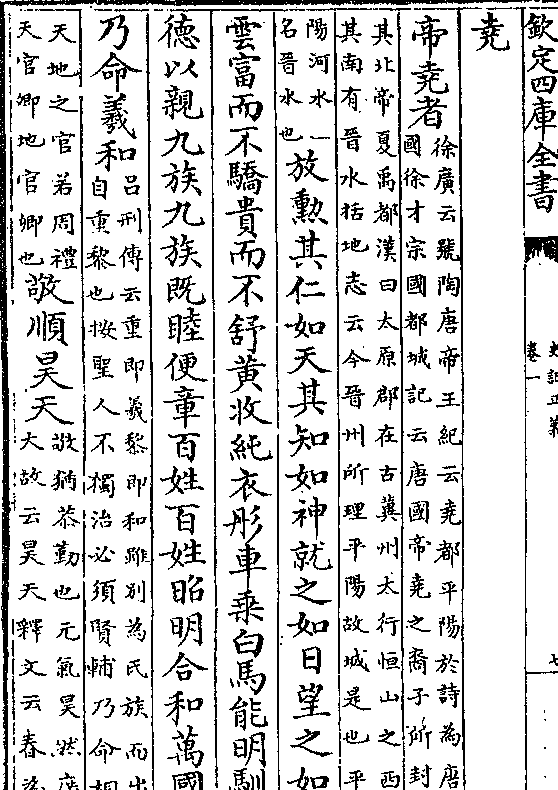 欽定四庫全書
史記正義
卷一
七
堯
帝堯者
徐廣云號陶唐帝王紀云堯都平陽於詩為唐
國徐才宗國都城記云唐國帝堯之裔子所封
其北帝夏禹都漢曰太原郡在古冀州太行恒山之西
其南有晉水括地志云今晉州所理平陽故城是也平
陽河水一
名晉水也
放勲其仁如天其知如神就之如日望之如
雲富而不驕貴而不舒黄收純衣彤車乘白馬能明馴
德以親九族九族既睦便章百姓百姓昭明合和萬國
乃命羲和
吕刑傳云重即羲黎即和雖别為氏族而出
自重黎也按聖人不獨治必須賢輔乃命相
天地之官若周禮
天官卿地官卿也
敬順昊天
敬猶恭勤也元氣昊然
大故云昊天釋文云春